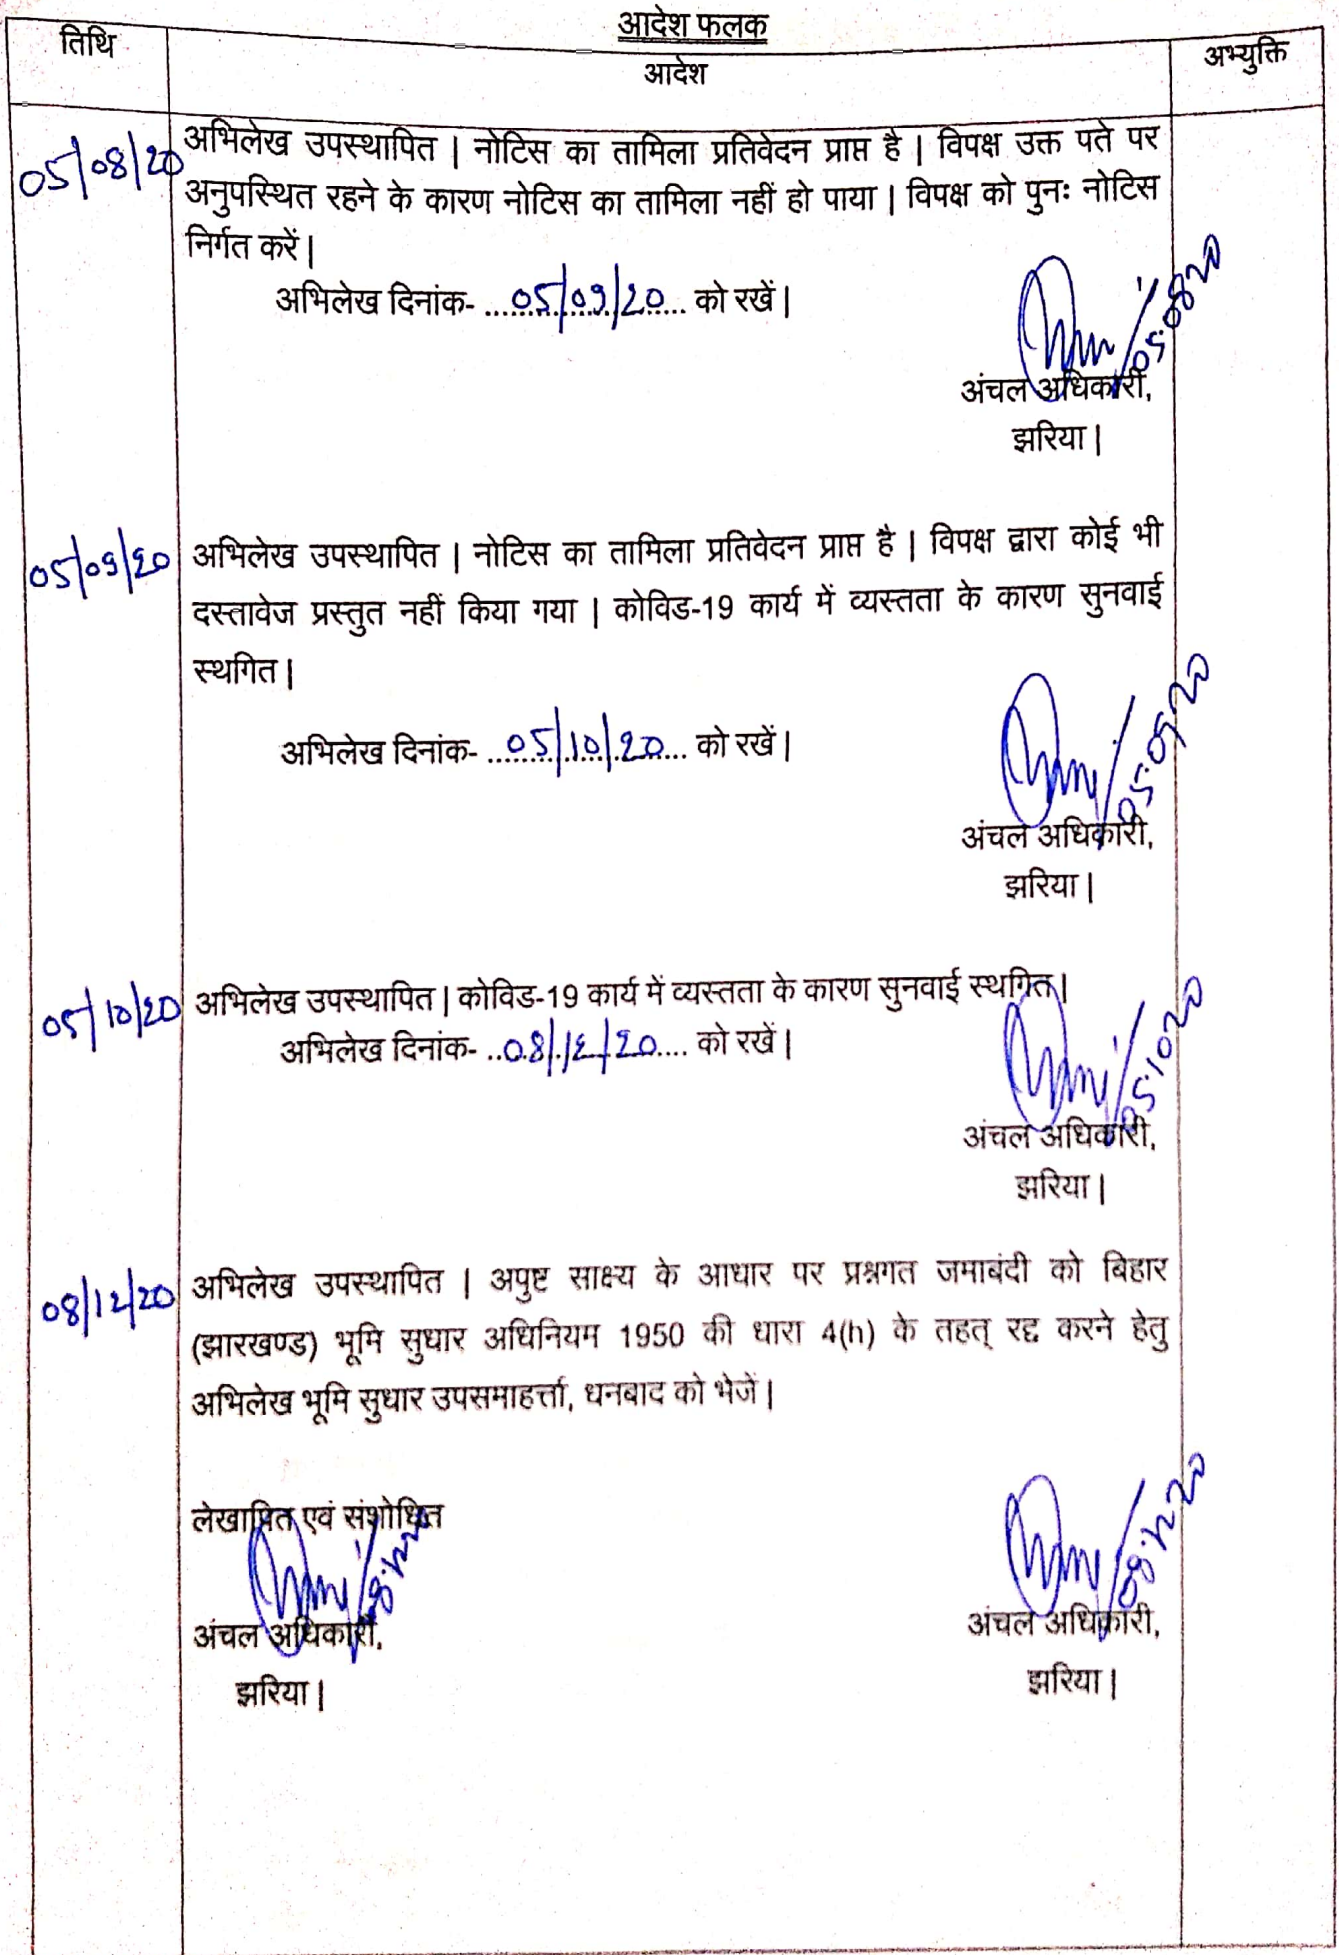 आदेश फलक
तिथि
आदेश
अभ्युक्ति
05/08/20
अभिलेख उपस्थापित | नोटिस का तामिला प्रतिवेदन प्राप्त है | विपक्ष उक्त पते पर
अनुपस्थित रहने के कारण नोटिस का तामिला नहीं हो पाया | विपक्ष को पुनः नोटिस
निर्गत करें |
अभिलेख दिनांक- ...05/09/20... को रखें |
05.08.20
अंचल अधिकारी,
झरिया |
05/09/20
अभिलेख उपस्थापित | नोटिस का तामिला प्रतिवेदन प्राप्त है | विपक्ष द्वारा कोई भी
दस्तावेज प्रस्तुत नहीं किया गया | कोविड-19 कार्य में व्यस्तता के कारण सुनवाई
स्थगित |
अभिलेख दिनांक- ...05/10/20... को रखें |
05.09.20
अंचल अधिकारी,
झरिया |
05/10/20
अभिलेख उपस्थापित | कोविड-19 कार्य में व्यस्तता के कारण सुनवाई स्थगित |
अभिलेख दिनांक- ..08/12/20.... को रखें |
05.10.20
अंचल अधिकारी,
झरिया |
08/12/20
अभिलेख उपस्थापित | अपुष्ट साक्ष्य के आधार पर प्रश्नगत जमाबंदी को बिहार
(झारखण्ड) भूमि सुधार अधिनियम 1950 की धारा 4(h) के तहत् रद्द करने हेतु
अभिलेख भूमि सुधार उपसमाहर्त्ता, धनबाद को भेजें |
लेखापित एवं संशोधित
08.12.20
08.12.20
अंचल अधिकारी,
अंचल अधिकारी,
झरिया |
झरिया |